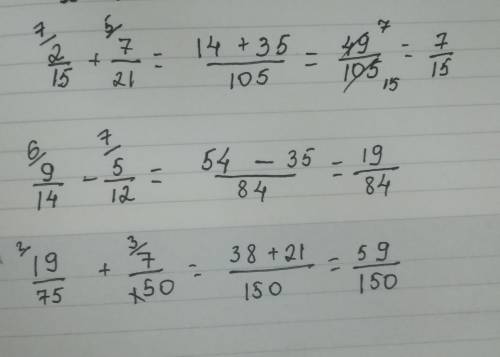 7/ 2/15 + 5/ 7/21 = (14 + 35)/105 = 49/105 7 15 = 7/15
6/ 9/14 - 7/ 5/12 = (54 - 35)/84 = 19/84
2/ 19/75 + 3/ 7/50 = (38 + 21)/150 = 59/150